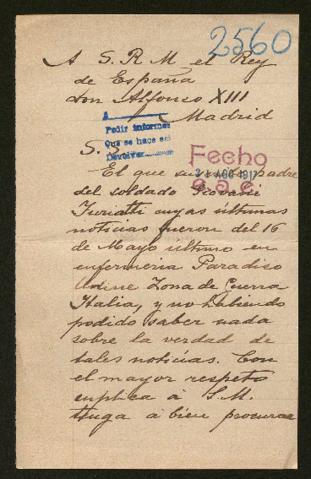 2560
A S. R. M el Rey
de España
Don Alfonso XIII
Madrid
A
Pedir informes
Que se hace
Devolver
Fecho
21 AGO 1917
S. S.
El que suscribe padre
del soldado Giovanni
Turiatti cuyas últimas
noticias fueron del 16
de Mayo último en
enfermeria Paradiso
Udine Zona de Guerra
Italia, y no habiendo
podido saber nada
sobre la verdad de
tales noticias. Con
el mayor respeto
suplica á S. M.
tenga á bien procurar